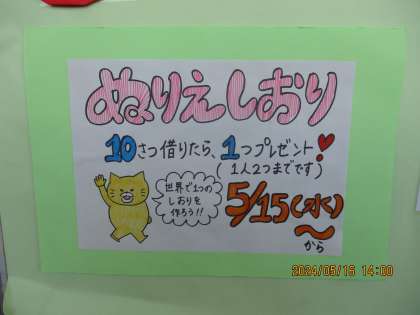 ぬりえしおり
10さつ借りたら、1つプレゼント!
(1人2つまでです)
世界で1つの
しおりを
作ろう!!
5/15(水)
〜
から
2024/05/15 14:00